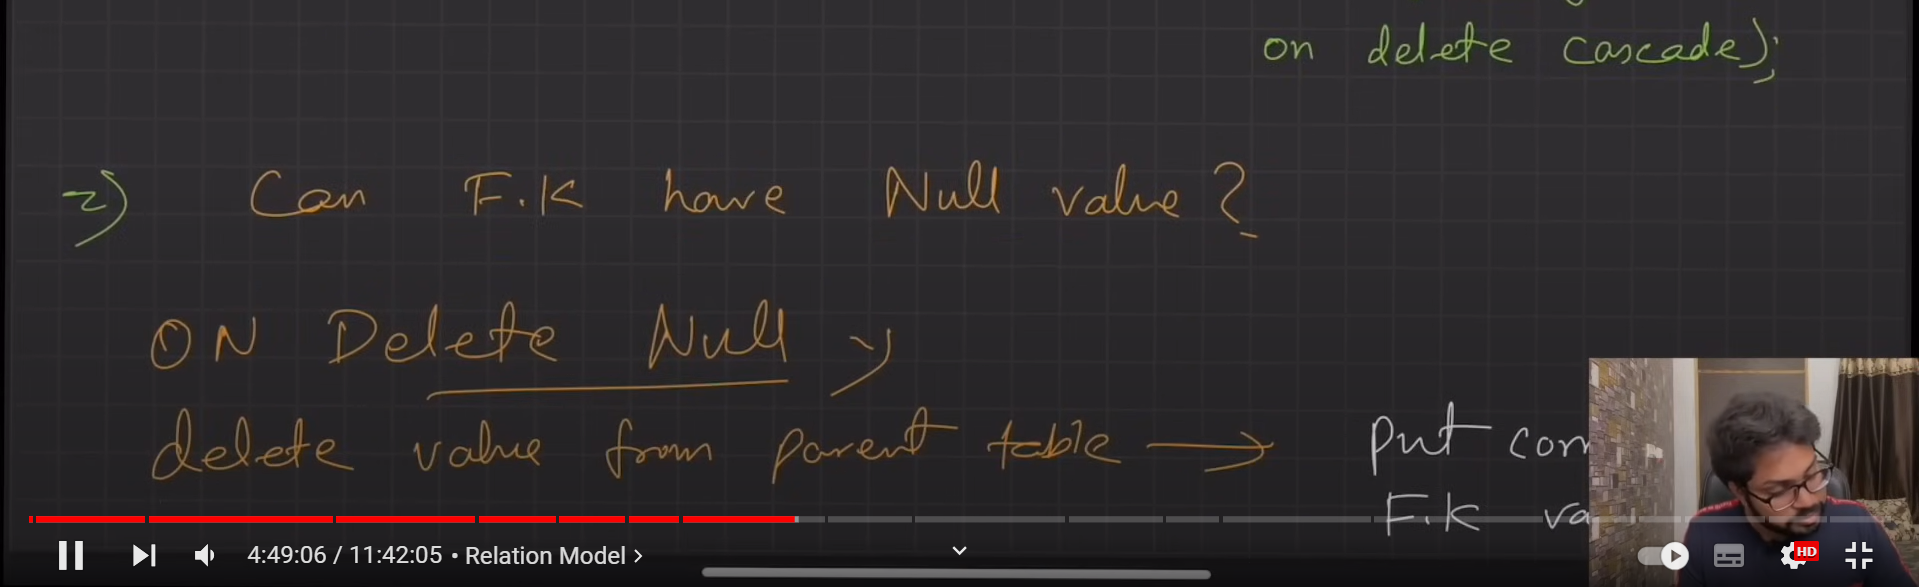 on delete cascade);
2) Can F.K have Null value?
ON Delete Null →
delete value from parent table → put
F.K
4:49:06 / 11:42:05 • Relation Model >
HD